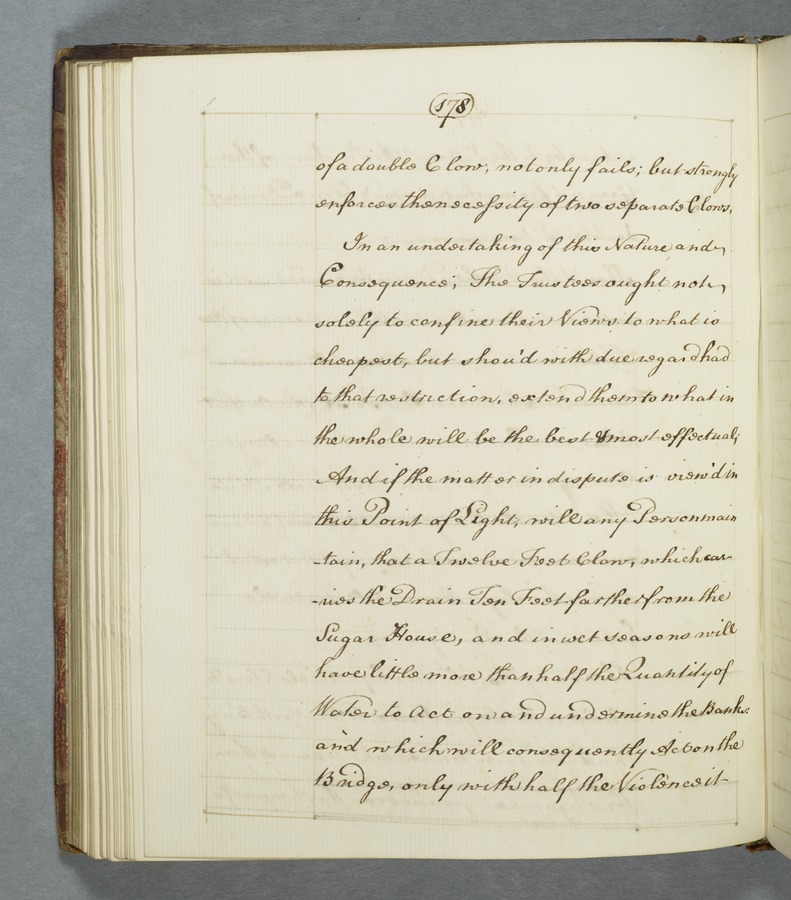 178
of a double Clow, not only fails; but strongly
enforces the necessity of two separate Clows.
In an undertaking of this Nature and
Consequence; The Trustees ought not
solely to confine their Views to what is
cheapest, but shou'd with due regard had
to that restriction, extend them to what in
the whole will be the best & most effectual;
And if the matter in dispute is view'd in
this Point of Light, will any Person main
-tain, that a Twelve Feet Clow, which car
-ries the Drain Ten Feet farther from the
Sugar House, and in wet seasons will
have little more than half the Quantity of
Water to Act on and undermine the Banks:
and which will consequently Act on the
Bridge, only with half the Violence it